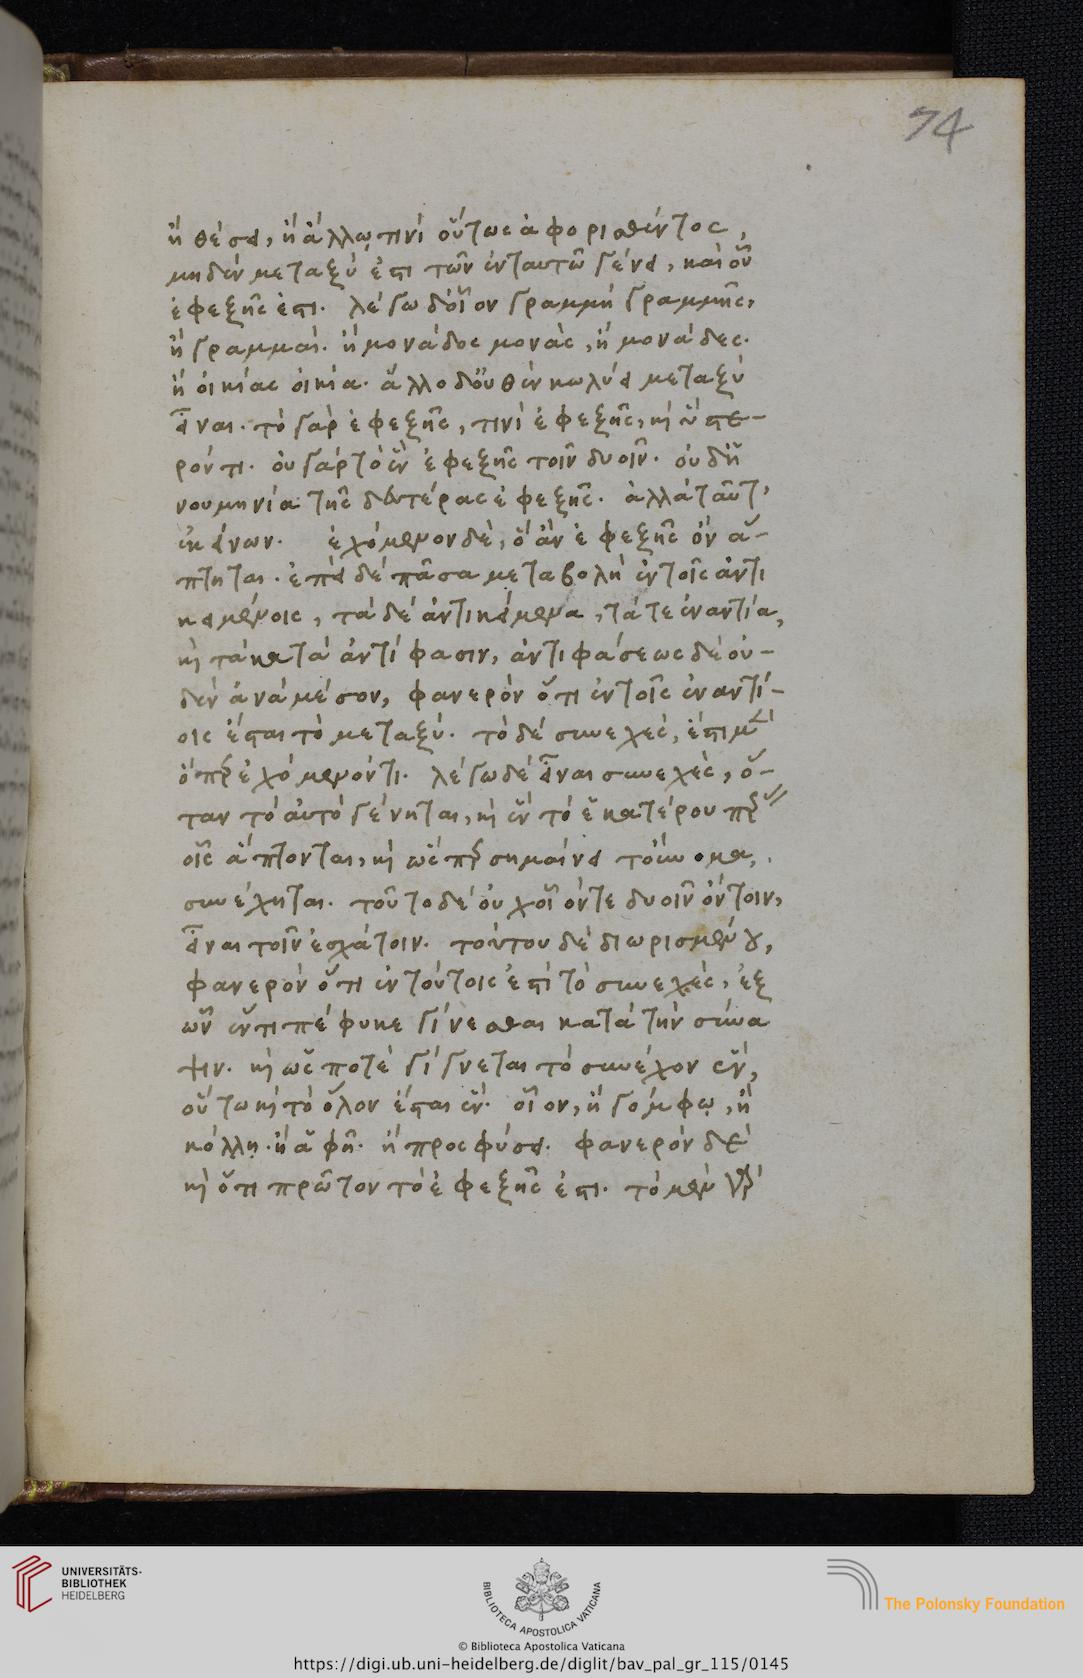 74
ἢ θέσει, ἢ ἄλλῳ τινὶ οὕτως ἀφορισθέντος,
μηδὲν μεταξύ ἐστι τῶν ἐν ταυτῷ γένει, καὶ οὗ
ἐφεξῆς ἐστι. λέγω δ' οἷον γραμμὴ γραμμῆς,
ἢ γραμμαί. ἢ μονάδος μονὰς, ἢ μονάδες.
ἢ οἰκίας οἰκία. ἄλλο δ' οὐθὲν κωλύει μεταξὺ
εἶναι. τὸ γὰρ ἐφεξῆς, τινὶ ἐφεξῆς, κὶ ὕστε-
ρόν τι. οὐ γὰρ τὸ ἓν ἐφεξῆς τοῖν δυοῖν. οὐδ' ἡ
νουμηνία τῆς δευτέρας ἐφεξῆς. ἀλλὰ ταῦτ'
ἐκείνων. ἐχόμενον δὲ, ὃ ἂν ἐφεξῆς ὂν ἅ-
πτηται. ἐπεὶ δὲ πᾶσα μεταβολὴ ἐν τοῖς ἀντι
κειμένοις, τὰ δὲ ἀντικείμενα, τά τε ἐναντία,
κὶ τὰ κατὰ ἀντίφασιν, ἀντιφάσεως δὲ οὐ-
δὲν ἀνὰ μέσον, φανερὸν ὅτι ἐν τοῖς ἐναντί-
οις ἔσται τὸ μεταξύ. τὸ δὲ συνεχὲς, ἔστι μὲν
ὅπερ ἐχόμενόν τι. λέγω δὲ εἶναι συνεχὲς, ὅ-
ταν τὸ αὐτὸ γένηται, κὶ ἓν τὸ ἑκατέρου πέρας
οἷς ἅπτονται, κὶ ὥσπερ σημαίνει τοὔνομα,
συνέχηται. τοῦτο δὲ οὐχ οἷόν τε δυοῖν ὄντοιν,
εἶναι τοῖν ἐσχάτοιν. τούτου δὲ διωρισμένου,
φανερὸν ὅτι ἐν τούτοις ἐστὶ τὸ συνεχὲς, ἐξ
ὧν ἕν τι πέφυκε γίνεσθαι κατὰ τὴν σύνα
ψιν. κὶ ὥς ποτε γίγνεται τὸ συνέχον ἓν,
οὕτω κὶ τὸ ὅλον ἔσται ἕν. οἷον, ἢ γόμφῳ, ἢ
κόλλῃ. ἢ ἁφῇ. ἢ προσφύσει. φανερὸν δὲ
κὶ ὅτι πρῶτον τὸ ἐφεξῆς ἐστι. τὸ μὲν γὰρ
UNIVERSITÄTS-
BIBLIOTHEK
HEIDELBERG
BIBLIOTECA APOSTOLICA VATICANA
The Polonsky Foundation
© Biblioteca Apostolica Vaticana
https://digi.ub.uni-heidelberg.de/diglit/bav_pal_gr_115/0145